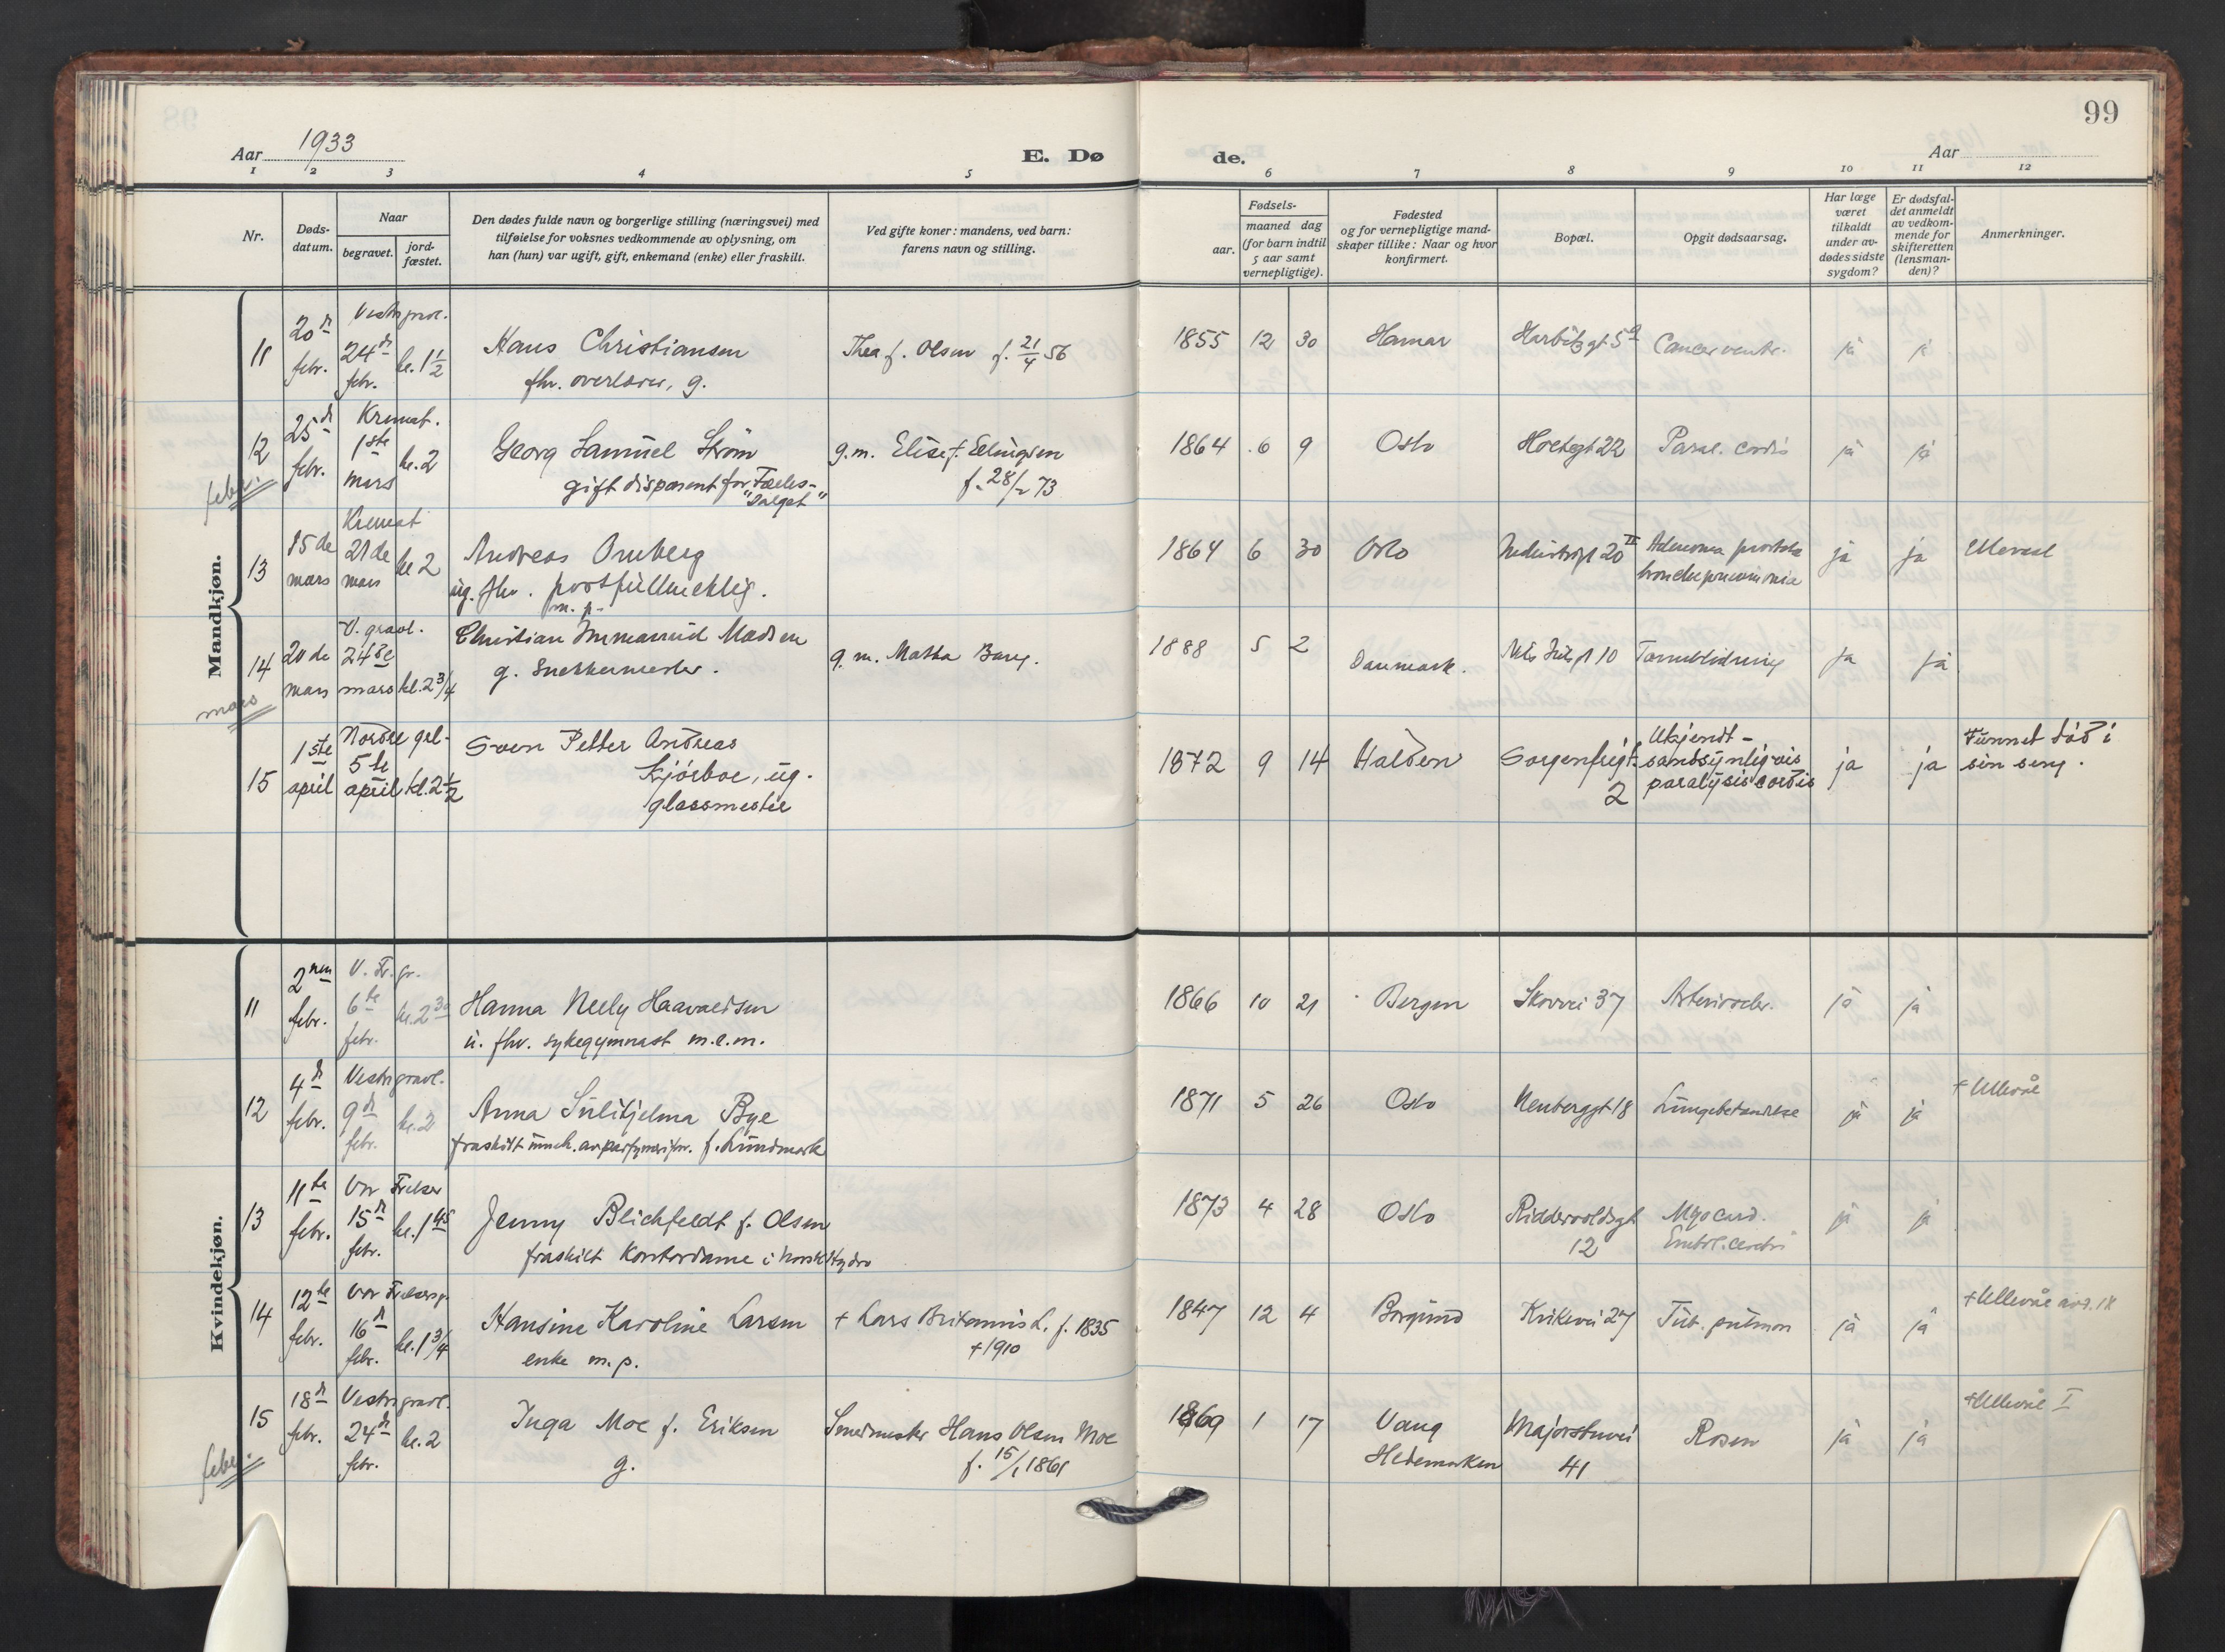 99
Aar 1933
E. Dø
de.
Aar
1 2 3 4 5
6 7 8 9 10 11 12
Nr.
Døds-
datum.
Naar
begravet.
jord-
fæstet.
Den dødes fulde navn og borgerlige stilling (næringsvei) med
tilføielse for voksnes vedkommende av oplysning, om
han (hun) var ugift, gift, enkemand (enke) eller fraskilt.
Ved gifte koner: mandens, ved barn:
farens navn og stilling.
Fødsels-
aar.
maaned dag
(for barn indtil
5 aar samt
vernepligtige).
Fødested
og for vernepligtige mand-
skaper tillike: Naar og hvor
konfirmert.
Bopæl.
Opgit dødsaarsag.
Har læge
været
tilkaldt
under av-
dødes sidste
sygdom?
Er dødsfal-
det anmeldt
av vedkom-
mende for
skifteretten
(lensman-
den)?
Anmerkninger.
Mandkjøn.
11
20
febr.
24
febr.
kl. 1 1/2
Hans Christiansen
fhv. g.
Thea f. Olsen f. 21/4 56
1855 12 30 Hamar Harbitzgt 5a Cancer ventr. ja ja
12
25
febr.
Kremat.
1ste
mars
kl. 2
Georg Samuel Strøm
gift disponent for Fælles-
"Salget"
g.m. Elise f. Ellingsen
f. 28/2 73
1864 6 9 Oslo Holtegt 22 Paral. cordis ja ja
febr.
13
15de
mars
Kremat
21de
mars
kl 2
Andreas
ug. fhv. postfullmektig.
m. p.
1864 6 30 Oslo Industrigt 20 II Adenoma prostata
bronchopneumonia
ja ja Ullevaal
14
20de
mars
V. gravl.
24de
mars
kl. 2 3/4
Christian Immanuel Madsen
g. Snekkermester.
g. m. Martha Borg.
1888 5 2 Danmark. Nils Juels gt 10 Tarmblødning ja ja
mars
15
1ste
april
Nordre grl.
5te
april
kl. 2 1/2
Sven Petter Andreas
Kjörboe, ug.
glassmester
1872 9 14 Halden Sorgenfrigt.
2
Ukjendt-
sandsynligvis
paralysis cordis
ja ja
Funnet død i
sin seng.
Kvindekjøn.
11
2nen
febr.
V. Fr. gr.
6te
febr.
kl. 2 30
Hanna Nelly Haavaldsen
u. fhv. sykegymnast m.e.m.
1866 10 21 Bergen Skovvei 37 Arterioscler. ja ja
12
4
febr.
Vestre gravl.
9
febr.
kl. 2
Anna Sulitjelma Bye
fraskilt f. Lundmark
1871 5 26 Oslo Neuberggt 18 Lungebetændelse ja ja
+ Ullevål
13
11te
febr.
Vor Frelser
15
febr.
kl. 1 45
Jenny Blichfeldt f. Olsen
fraskilt Kontordame i Norsk Hydro
1873 4 28 Oslo Riddervoldsgt
12
Myocard.
Embol. cerebri
ja ja
14
12te
febr.
Vor Frelsersgr.
16
febr.
kl. 1 3/4
Hansine Karoline Larsen
enke m.p.
+ Lars Britannius L. f. 1835
+ 1910
1847 12 4 Borgund Kirkevei 27 Tub. pulmon ja ja
+ Ullevål avd. IX
15
18
febr.
Vestre gravl.
24
febr.
kl. 2
Inga Moe f. Eriksen
g.
Smedmester Hans Olsen Moe
f. 15/1 1861
1869 1 17 Vang
Hedemarken
Majorstuvei
41
Rosen ja ja
+ Ullevål I
febr.